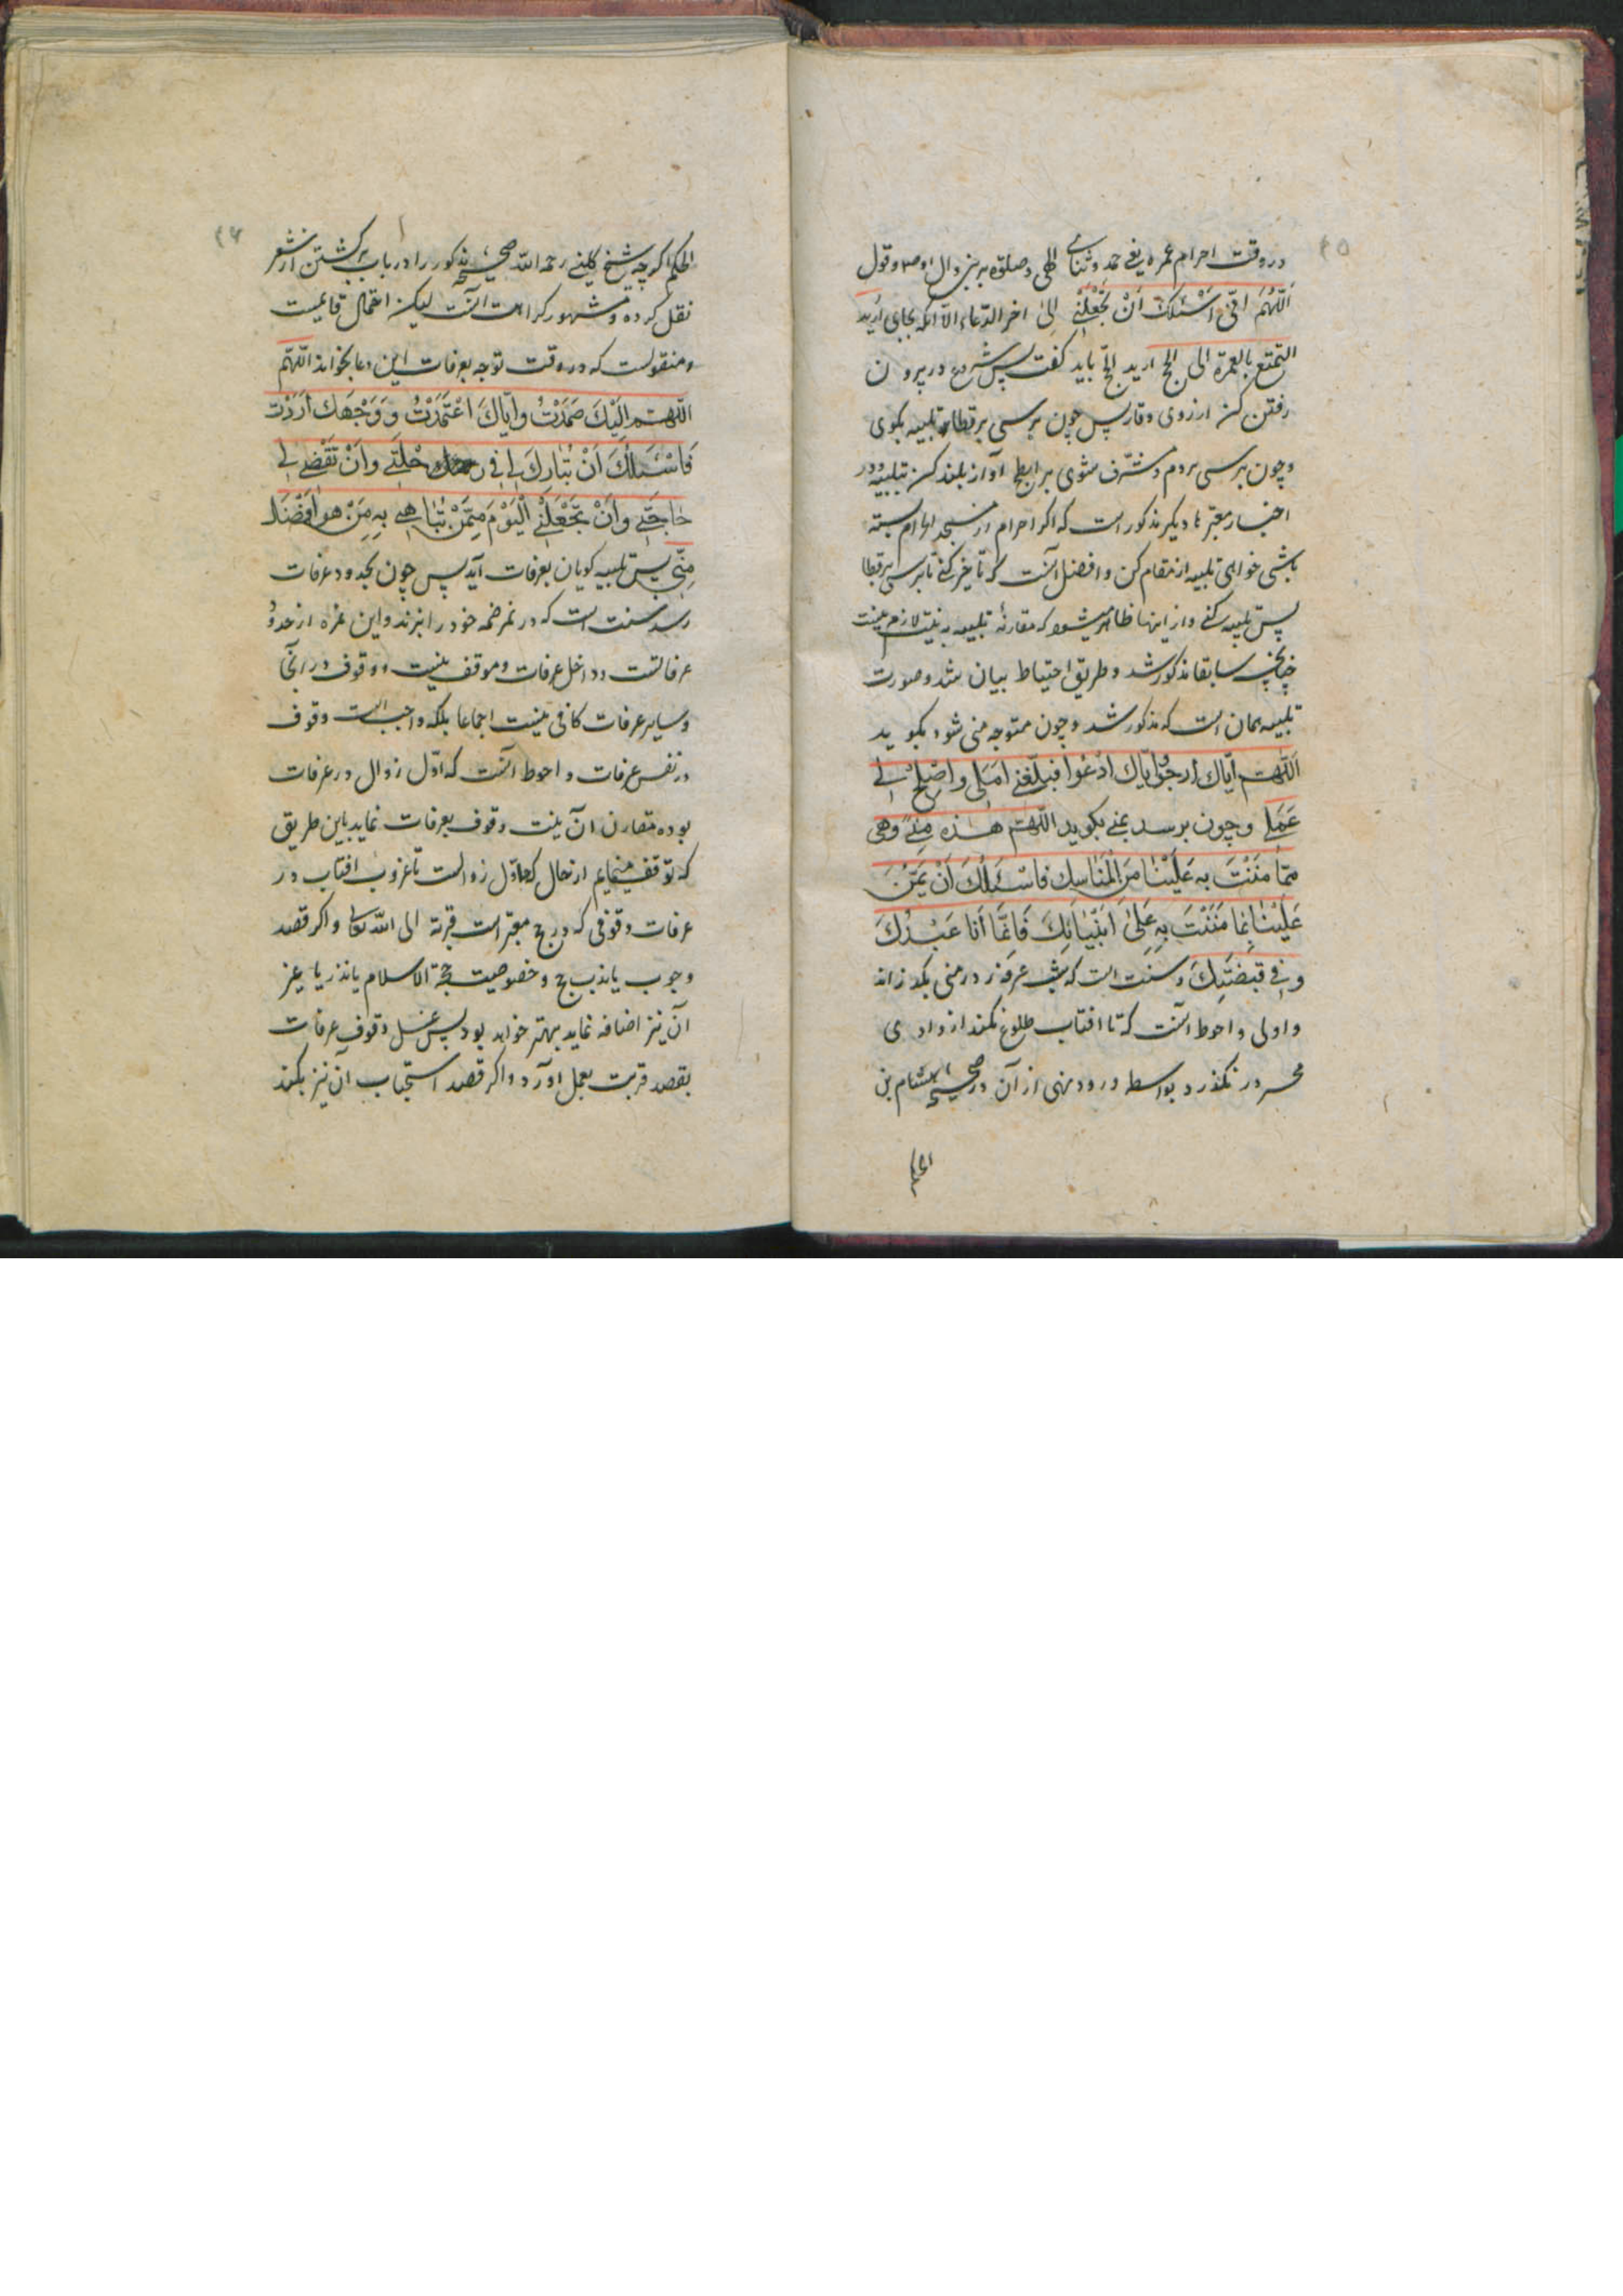 ۴۵
در وقت احرام عمره یعنی حمد و ثنای الهی و صلوة بر نبی و آل او ص و قول
اَللّهُمَ انّی اَسْئلکَ اَنْ تَجْعَلَنْی اِلیٰ اخر الدّعاء الّا آنکه بجای اُرید
التمتع بالعمرة الی الحج ارید الحجّ باید کفت پس شروع در پرون
رفتن کن از روی وقار پس چون برسی برقطا تلبیه بکوی
و چون برسی بردم و مشرف شوی بر ابطح آواز بلند کن بتلبیه و در
اخبار معتبره دیکر مذکور است که اکر احرام از مسجد الحرام بسته
باشی خواهی تلبیه از مقام کن و افضل آنست که تاخیر کنی تا برسی برقطا
پس تلبیه کنی و از اینها ظاهر میشود که مقارنهٔ تلبیه به نیت لازم نیست
چنانچه سابقا مذکور شد و طریق احتیاط بیان شد و صورت
تلبیه همان است که مذکور شد و چون متوجه منی شود بکوید
اَللّهم اِیّاك اَرجوُ وایّاك ادْعُوا فبلّغنی امَلی واصْلِحْ لی
عَمَلی و چون برسد بمنی بکوید اللّهم هذه مِنیً وهی
مّما مَنَنْتَ به عَلَیْنٰا مَن الْمَنٰاسِك فاسْئَلُكَ اَنْ تَمُنّ
عَلَیْنٰا بِمٰا مَنَنْتَ بِه عَلیٰ اَنْبیٰائِكَ فَانّمَا اَنَا عَبْدُكَ
و فی قبضَتِكَ و سنت است که شب عرفه در منی بکذراند
و اولی و احوط آنست که تا افتاب طلوع نکند از وادی
محسر در نکذرد بواسطه ورود نهی از آن در صحیح هشام بن
الحکم
۴۶
الحکم اکرچه شیخ کلینی رحمه اللّه صحیح مذکور را در باب برکشتن از مشعر
نقل کرده و مشهور کراهت آنست لیکن احتمال قائمست
و منقولست که در وقت توجه بعرفات این دعا بخواند اللّهم
اللّهم اِلَیْكَ صَمَدْتُ وَاِیّاكَ اعْتَمَدْتُ وَ وَجْهَك اَرَدْتُ
فَاسْئَلُكَ اَنْ تُبٰارِكَ لی فی رِحْلَتی وَاَنْ تَقْضی لی
حٰاجَتی وَاَنْ تَجْعَلَنی الْیَوْمَ مِمَّنْ تُبٰاهی بِه مَنْ هو اَفْضَل
مِنّی پس تلبیه کویان بعرفات آید پس چون بحدود عرفات
رسد سنت است که در نمره خیمه خود را بزند و این نمره از حدود
عرفاتست و داخل عرفات و موقف نیست و وقوف در آنجا
و سایر عرفات کافی نیست اجماعا بلکه واجب است وقوف
در نفس عرفات و احوط آنست که اوّل زوال در عرفات
بوده مقارن آن نیت وقوف بعرفات نماید باین طریق
که توقف مینمایم از حال که اوّل زوالست تا غروب افتاب در
عرفات وقوفی که در حج معتبر است قربة الی اللّه تعالی و اکر قصد
وجوب یا ندب حج و خصوصیت حجة الاسلام یا نذر یا غیر
آن نیز اضافه نماید بهتر خواهد بود پس غسل وقوف عرفات
بقصد قربت بعمل آورد و اکر قصد استحباب آن نیز بکند